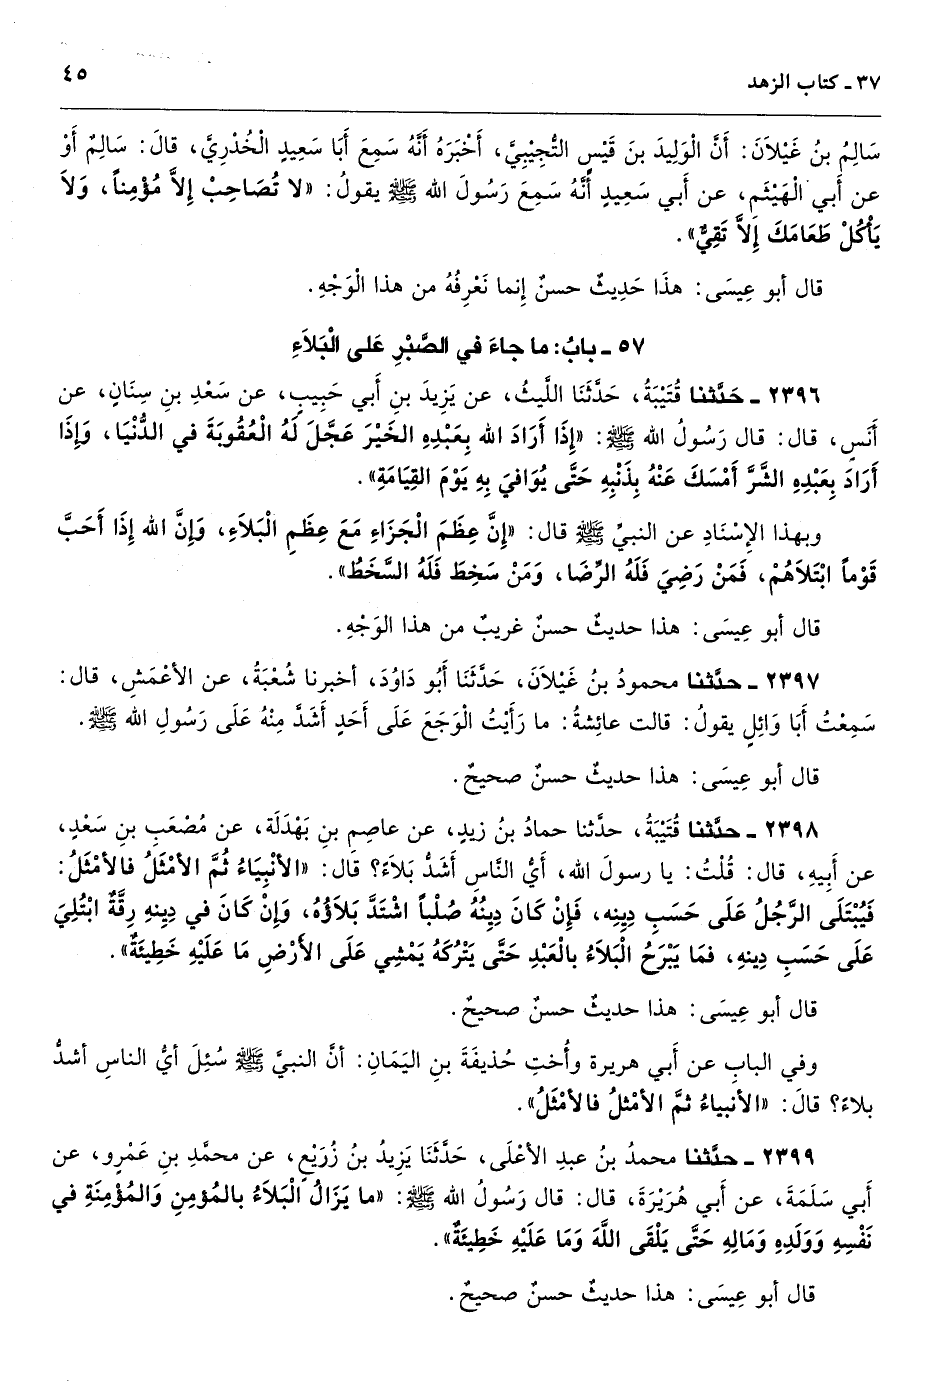 ٣٧ ـ كتاب الزهد
٤٥
سَالِمُ بنُ غَيْلاَنَ: أَنَّ الْوَلِيدَ بنَ قَيْسٍ التُّجِيْبِيَّ، أَخْبَرَهُ أَنَّهُ سَمِعَ أَبَا سَعِيدٍ الْخُدْرِيَّ، قالَ: سَالِمٌ أَوْ
عن أَبي الْهَيْثَمِ، عن أَبي سَعِيدٍ أَنَّهُ سَمِعَ رَسُولَ الله ﷺ يقولُ: «لا تُصَاحِبْ إِلاَّ مُؤْمِناً، وَلاَ
يَأْكُلْ طَعَامَكَ إِلاَّ تَقِيٌّ».
قال أبو عِيسَى: هذَا حَدِيثٌ حسنٌ إِنما نَعْرِفُهُ من هذا الْوَجْهِ.
٥٧ ـ بابُ: ما جاءَ في الصَّبْرِ عَلى الْبَلاَءِ
٢٣٩٦ ـ حَدَّثنا قُتَيْبَةُ، حَدَّثَنَا اللَّيثُ، عن يَزِيدَ بنِ أَبي حَبِيبٍ، عن سَعْدِ بنِ سِنَانٍ، عن
أَنَسٍ، قال: قال رَسُولُ الله ﷺ: «إِذَا أَرَادَ الله بِعَبْدِهِ الخَيْرَ عَجَّلَ لَهُ الْعُقُوبَةَ في الدُّنْيَا، وَإِذَا
أَرَادَ بِعَبْدِهِ الشَّرَّ أَمْسَكَ عَنْهُ بِذَنْبِهِ حَتَّى يُوَافيَ بِهِ يَوْمَ القِيَامَةِ».
وبهذا الإِسْنَادِ عن النبيِّ ﷺ قال: «إِنَّ عِظَمَ الْجَزَاءِ مَعَ عِظَمِ البَلاَءِ، وَإِنَّ الله إِذَا أَحَبَّ
قَوْماً ابْتَلاَهُمْ، فَمَنْ رَضِيَ فَلَهُ الرِّضَا، وَمَنْ سَخِطَ فَلَهُ السَّخَطُ».
قال أبو عِيسَى: هذا حديثٌ حسنٌ غريبٌ من هذا الوَجْهِ.
٢٣٩٧ ـ حدَّثنا محمودُ بنُ غَيْلاَنَ، حَدَّثَنَا أَبُو دَاوُدَ، أخبرنا شُعْبَةُ، عن الأعْمَشِ، قال:
سَمِعْتُ أَبَا وَائِلٍ يقولُ: قالت عائِشةُ: ما رَأَيْتُ الْوَجَعَ عَلَى أَحَدٍ أَشَدَّ مِنْهُ عَلَى رَسُولِ الله ﷺ.
قال أبو عِيسَى: هذا حديثٌ حسنٌ صحيحٌ.
٢٣٩٨ ـ حدَّثنا قُتَيْبَةُ، حدَّثنا حمادُ بنُ زيدٍ، عن عاصِمِ بنِ بَهْدَلَةَ، عن مُصْعَبِ بنِ سَعْدٍ،
عن أَبِيهِ، قال: قُلْتُ: يا رسولَ الله، أَيُّ النَّاسِ أَشَدُّ بَلاَءً؟ قال: «الأَنْبِيَاءُ ثُمَّ الأمْثَلُ فالأمْثَلُ:
فَيُبْتَلَى الرَّجُلُ عَلَى حَسَبِ دِينِهِ، فَإِنْ كَانَ دِينُهُ صُلْباً اشْتَدَّ بَلاَؤُهُ، وَإِنْ كَانَ في دِينِهِ رِقَّةٌ ابْتُلِيَ
عَلَى حَسَبِ دِينِهِ، فمَا يَبْرَحُ الْبَلاَءُ بالْعَبْدِ حَتَّى يَتْرُكَهُ يَمْشِي عَلَى الأَرْضِ مَا عَلَيْهِ خَطِيئَةٌ».
قال أبو عِيسَى: هذا حديثٌ حسنٌ صحيحٌ.
وفي البابِ عن أَبي هريرة وأُختِ حُذيفَةَ بنِ اليَمَانِ: أنَّ النبيَّ ﷺ سُئِلَ أيُّ الناسِ أشدُّ
بلاءً؟ قالَ: «الأنبياءُ ثمَّ الأمْثلُ فالأمْثَلُ».
٢٣٩٩ ـ حدَّثنا محمدُ بنُ عبدِ الأعْلَى، حَدَّثَنَا يَزِيدُ بنُ زُرَيْعٍ، عن محمَّدِ بنِ عَمْرٍو، عن
أَبي سَلَمَةَ، عن أَبي هُرَيْرَةَ، قال: قال رَسُولُ الله ﷺ: «ما يَزَالُ الْبَلاَءُ بالمُؤمِنِ وَالمُؤْمِنَةِ في
نَفْسِهِ وَوَلَدِهِ وَمَالِهِ حَتَّى يَلْقَى اللَّهَ وَمَا عَلَيْهِ خَطِيئَةٌ».
قال أبو عِيسَى: هذا حديثٌ حسنٌ صحيحٌ.